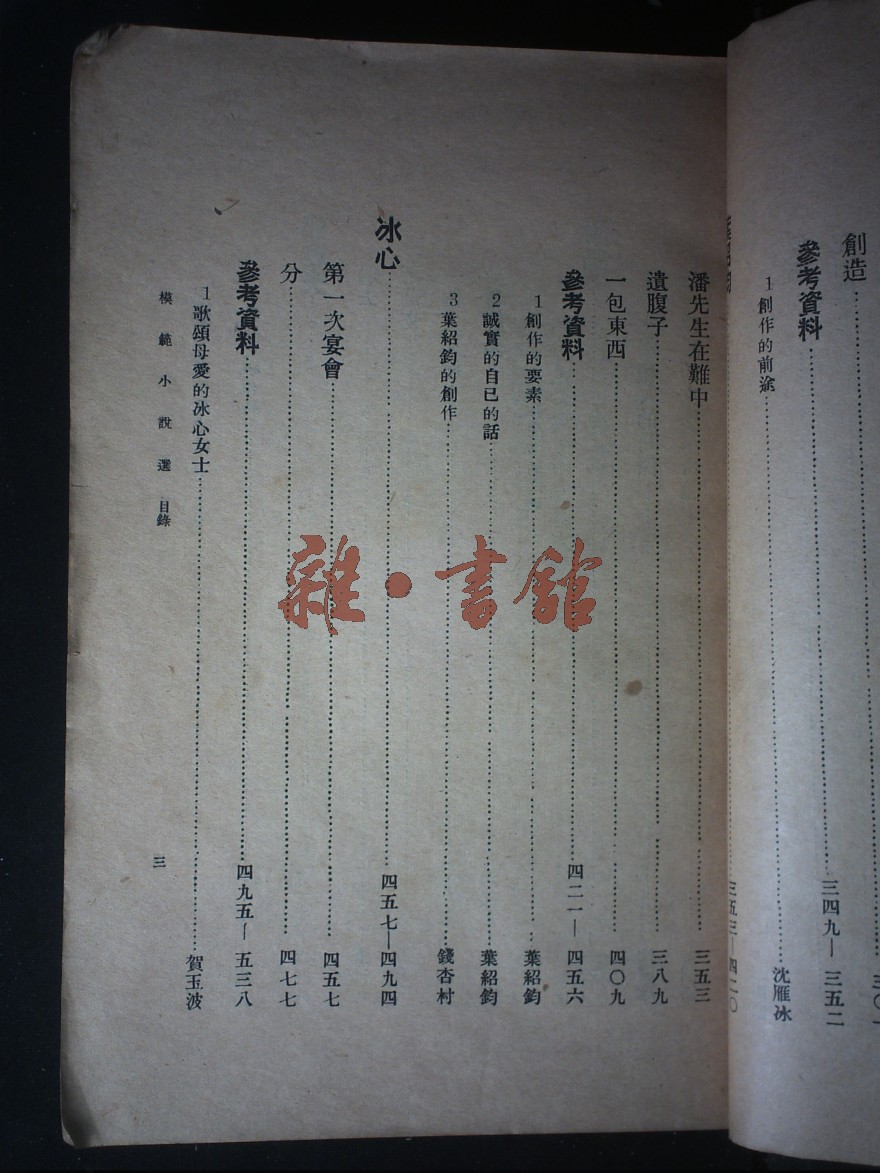 創造……三〇一
參考資料……三四九—三五二
1 創作的前途……沈雁冰
三五三—四二〇
潘先生在難中……三五三
遺腹子……三八九
一包東西……四〇九
參考資料……四二一—四五六
1 創作的要素……葉紹鈞
2 誠實的自己的話……葉紹鈞
3 葉紹鈞的創作……錢杏村
冰心……四五七—四九四
第一次宴會……四五七
分……四七七
參考資料……四九五—五三八
1 歌頌母愛的冰心女士……賀玉波
模範小說選 目錄
三
雜·書館